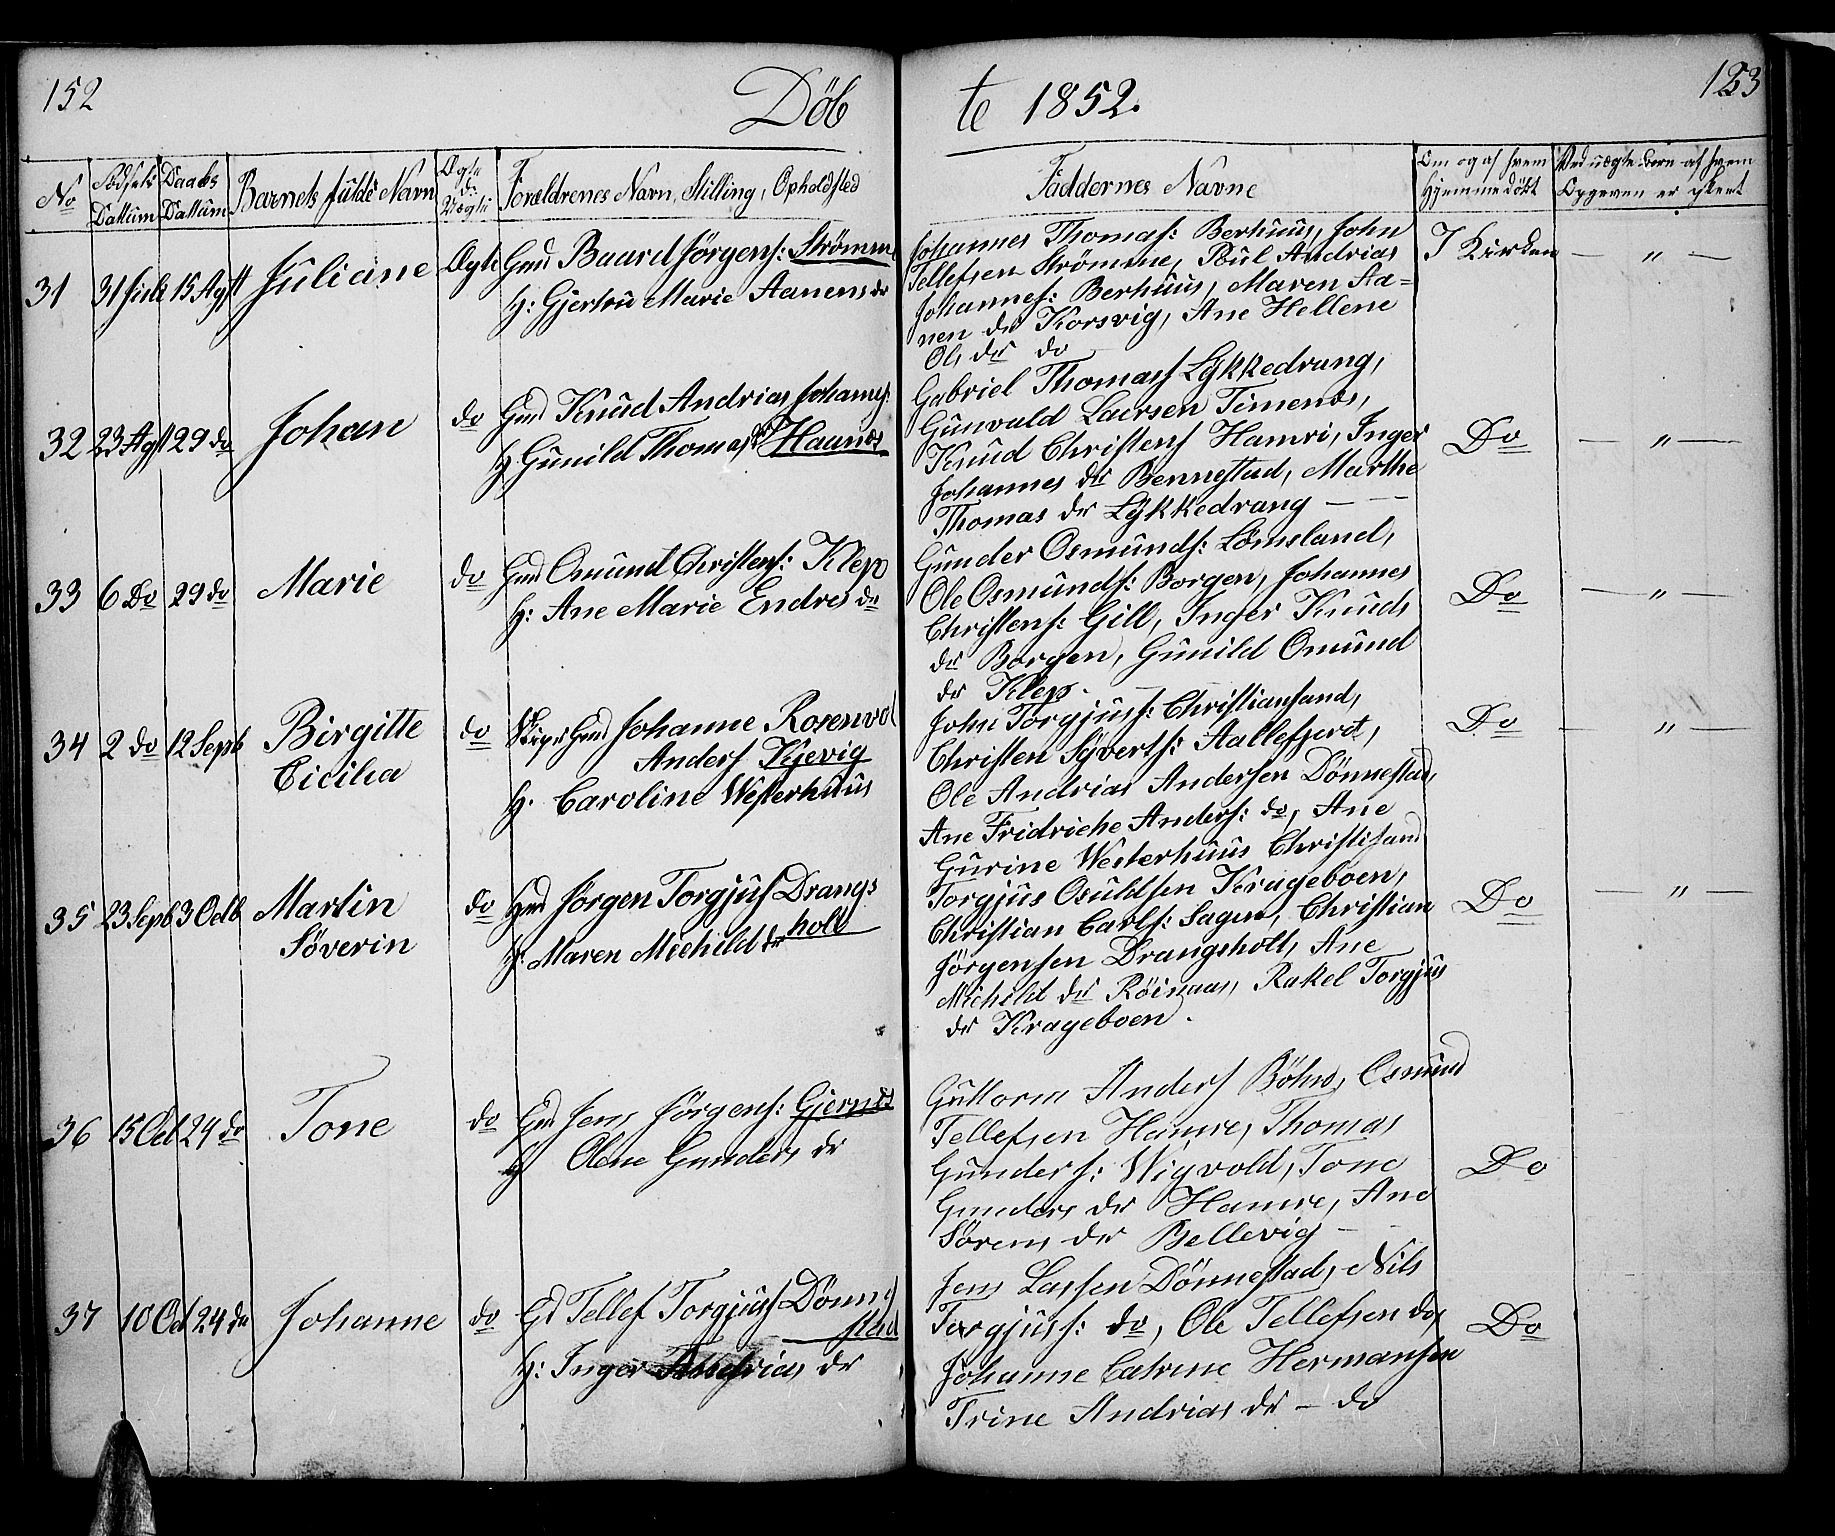 152
Döb
te 1852.
153
No
Födsels Dattum
Daabs Dattum
Barnets fulde Navn
Ægte do Uægte
Forældrenes Navn, Stilling, Opholdsted
Faddernes Navne
Om og af hvem Hjemmedöbt
Ved uægte Born af hvem Opgeven er skeet
31 31 Juli 15 Agst Juliane Ægte Gmd Baard Jörgens: Strömme
H: Gjertru Marie Aanens dr
Johannes Thomas: Berhuus, John
Tellefsen Strömme, Poul Andrias
Johannes: Berhuus, Maren Aa=
nen dr Korsvig, Ane Hellene
Ols dr do
I Kirken — " —
32 23 Agst 29 do Johan do Gmd Knud Andrias Johannes:
H Gunild Thomas dr Haanes
Gabriel Thomass Lykkedrang,
Gunvald Laursen Timenes,
Knud Christens Hamri, Inger
Johannes dr Bennestad, Marthe
Thomas dr Lykkedrang —
Do — " —
33 6 Do 29 do Marie do Gmd Omund Christens: Klep
H: Ane Marie Endres dr
Gunder Osmunds: Lömsland,
Ole Osmunds: Borgen, Johannes
Christens: Gill, Inger Knuds
dr Borgen, Gunild Omund
dr Klep.
Do — " —
34 2 do 12 Septb Birgitte do Gmd Johanne Rosenvol
Cicilia
Anders Kjevig
H. Caroline Westerhuus
John Torgjuss: Christiansand,
Christen Syverts: Aallefjerd,
Ole Andrias Andersen Dönnestad,
Ane Fridriche Anders: do, Ane
Gurine Westerhuus Christisand
Do — " —
35 23 Septb 3 Octb Martin do Hmd Jörgen Torgjus Drangs
Söverin
holt
H: Maren Michild dr
Torgjus Osuldsen Krageboen,
Christian Carls: Sagen, Christian
Jörgensen Drangsholt, Ane
Michild dr Röinaas, Rakel Torgjus
dr Krageboen.
Do — " —
36 15 Oct 24 do Tone do Gmd Jens Jörgens: Gjernes
H Olene Gunders dr
Guttorm Anders Böhn, Osmund
Tellefsen Hamre, Thomas
Gunders: Wigvold, Tone
Gunders dr Hamre, Ane
Sörens dr Bellevig —
Do
37 10 Oct 24 do Johanne do Gd Tellef Torgjuss Dönne
stad
H: Inger Andrias dr
Jens Lassen Dönnestad, Nils
Torgjuss: do, Ole Tellefsen do,
Johanne Catrine Hermansen
Trine Andrias dr — do
Do